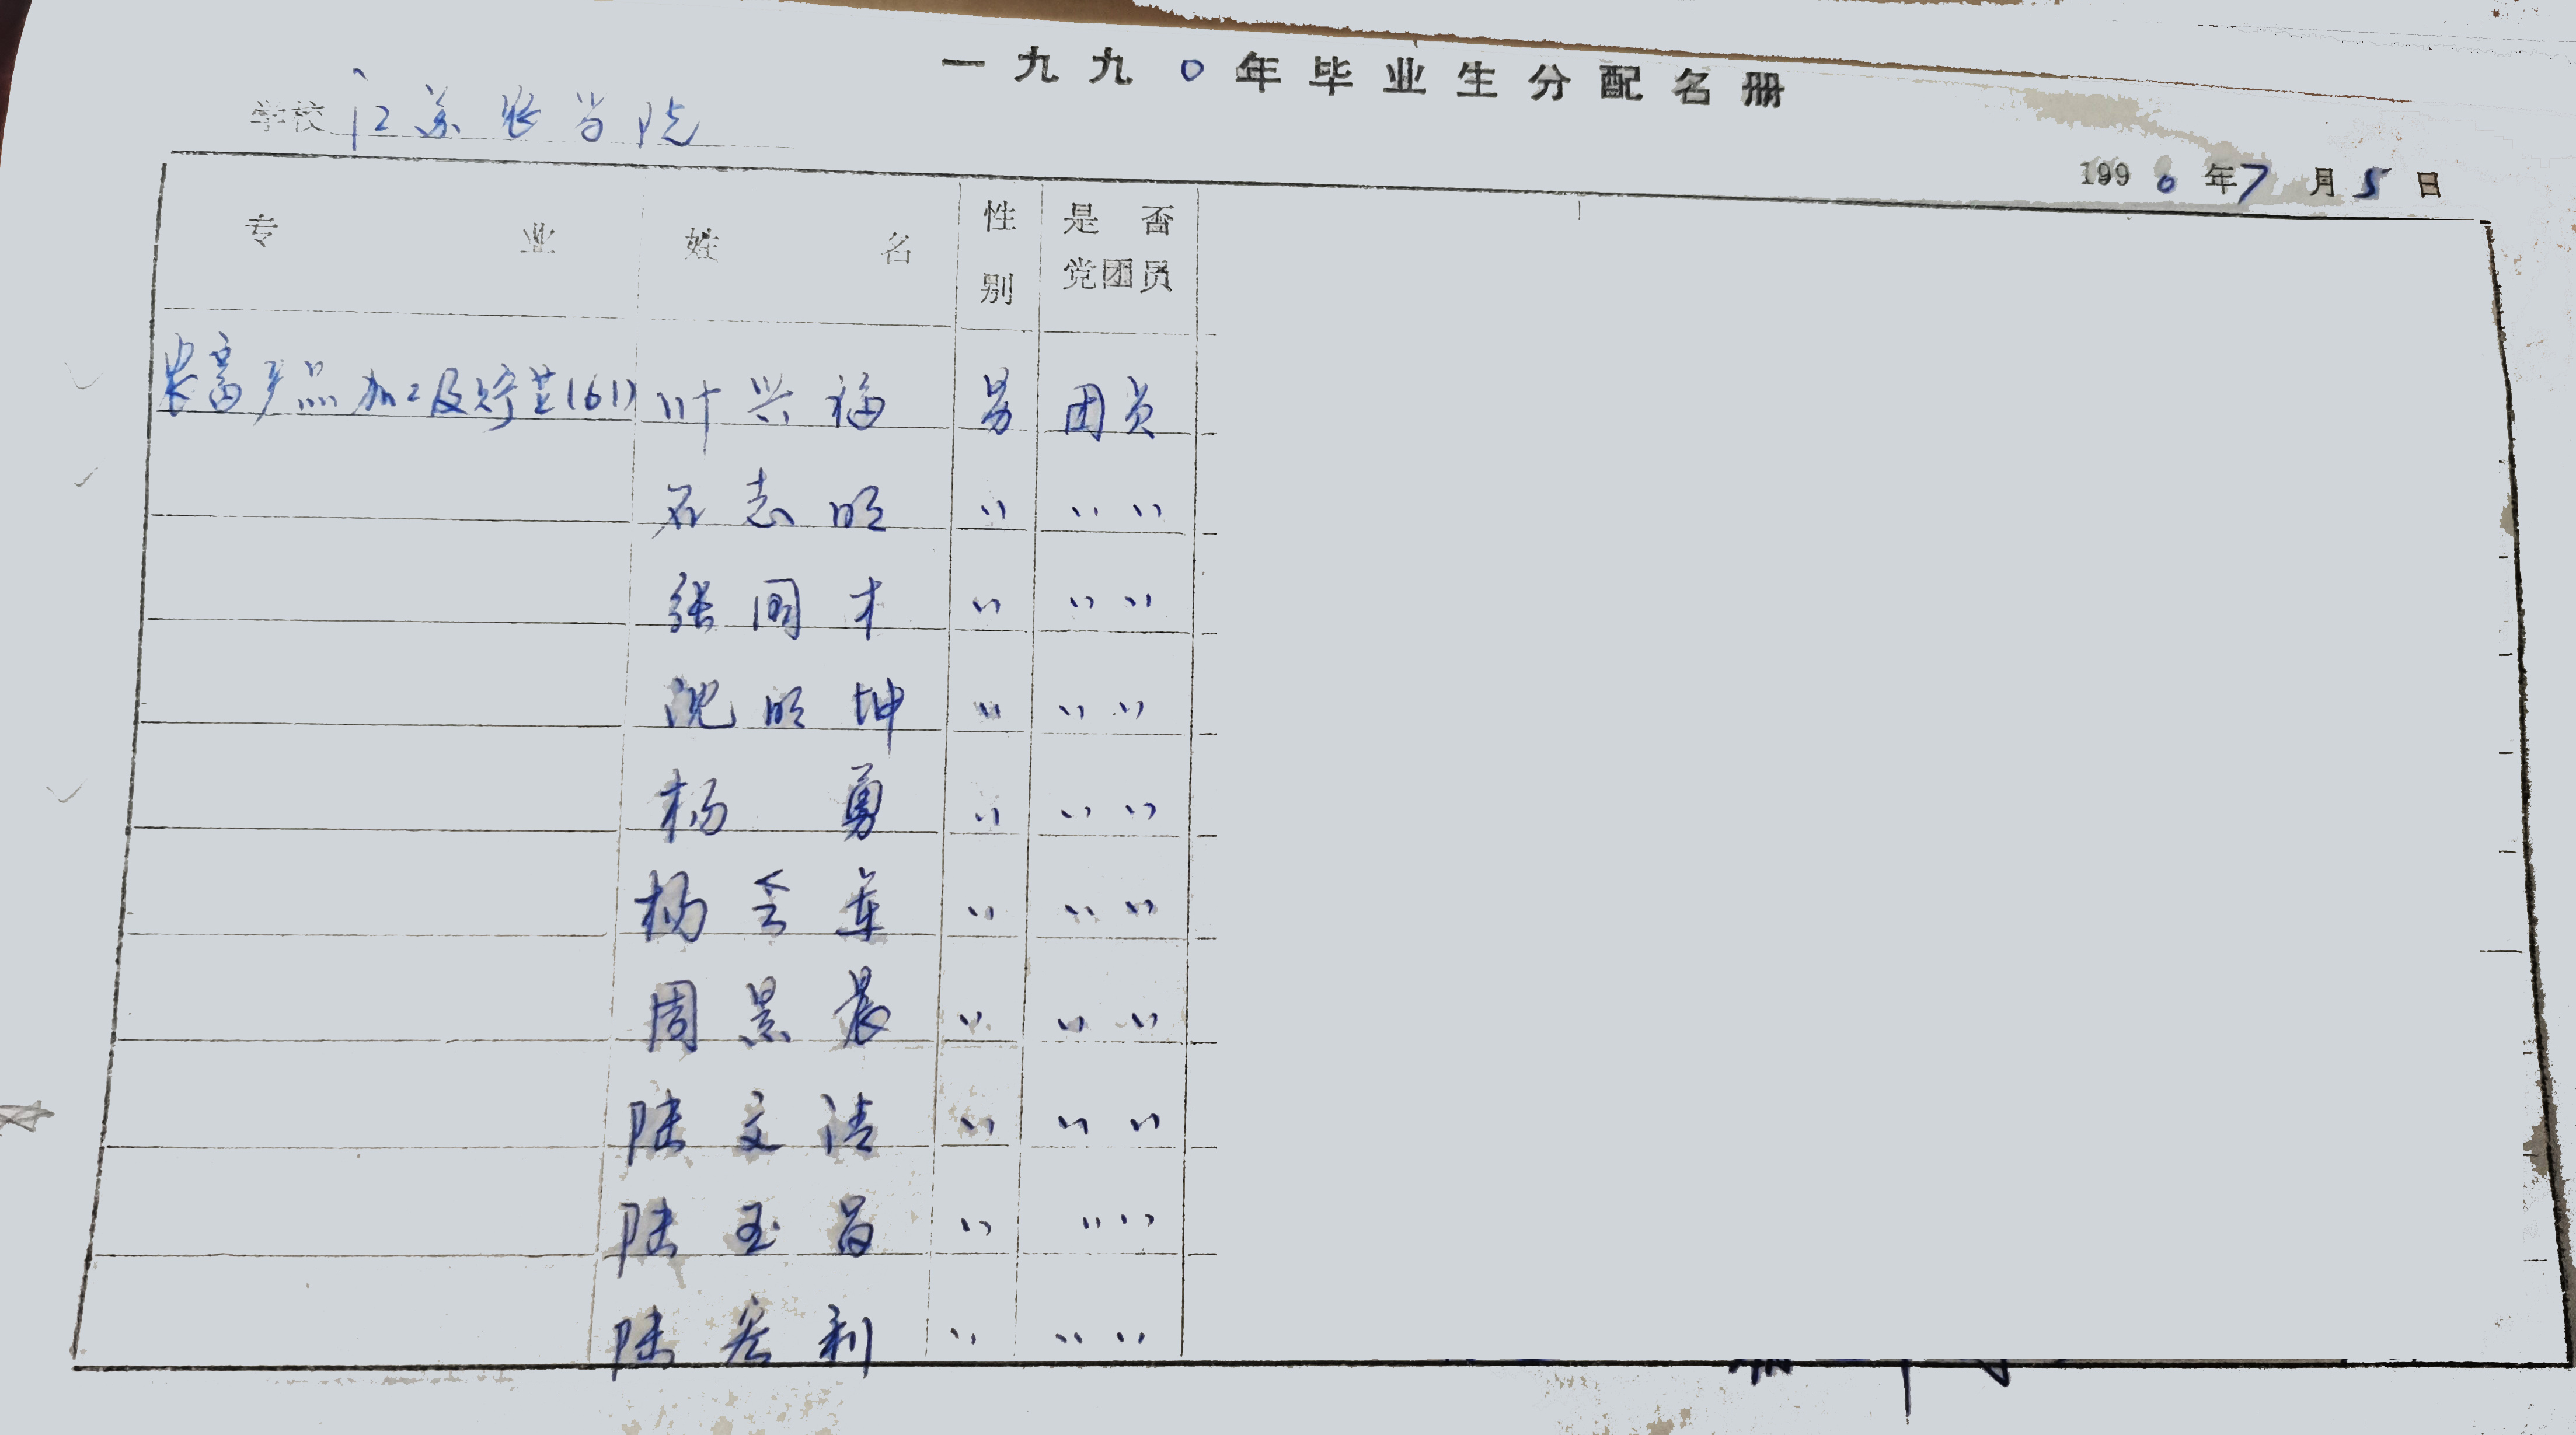 一九九0年毕业生分配名册
学校 江苏农学院
1990年7月5日
专业 姓名 性别 是否党团员
农畜产品加工及贮艺(61) 叶兴福 男 团员
石志明 〃 〃 〃
张国才 〃 〃 〃
沈明坤 〃 〃 〃
杨勇 〃 〃 〃
杨 军 〃 〃 〃
周景晨 〃 〃 〃
陆文清 〃 〃 〃
陆玉昌 〃 〃 〃
陆宏利 〃 〃 〃